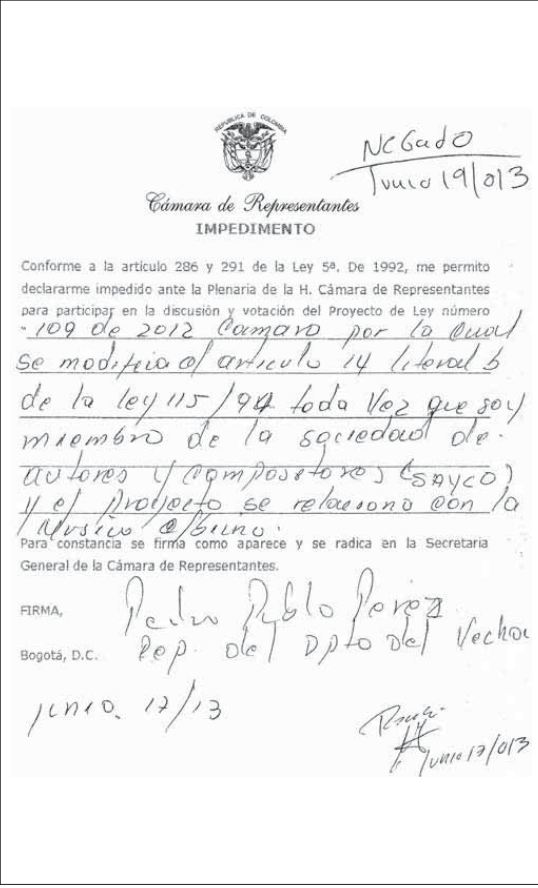 REPUBLICA DE COLOMBIA
NEGado
Junio 19/013
Cámara de Representantes
IMPEDIMENTO
Conforme a la artículo 286 y 291 de la Ley 5ª. De 1992, me permito
declararme impedido ante la Plenaria de la H. Cámara de Representantes
para participar en la discusión y votación del Proyecto de Ley número
109 de 2012 Camara por la cual
se modifica el articulo 14 literal b
de la ley 115/94 toda vez que soy
miembro de la sociedad de
autores y compositores (SAYCO)
y el proyecto se relaciona con la
Musica
Para constancia se firma como aparece y se radica en la Secretaria
General de la Cámara de Representantes.
FIRMA, Pedro Pablo Perez
Bogotá, D.C. Rep. del Dpto del
junio. 17/13
Junio 17/013